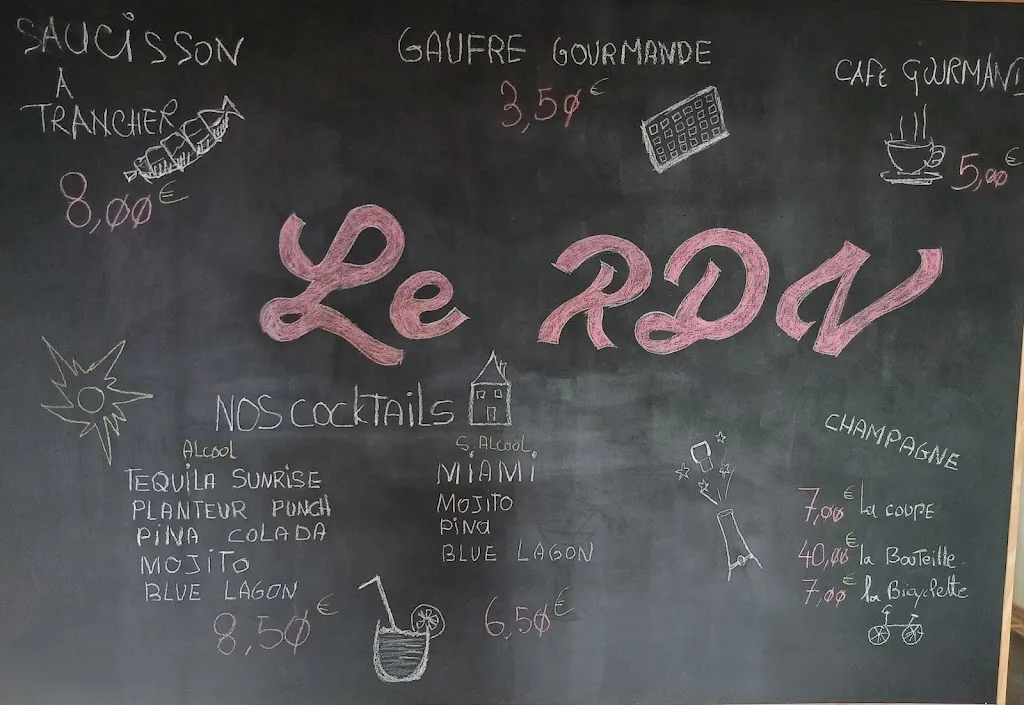 SAUCISSON
À
TRANCHER
8,00€
GAUFRE GOURMANDE
3,50€
CAFE GOURMAND
5,00€
Le RDN
NOS COCKTAILS
ALCOOL
TEQUILA SUNRISE
PLANTEUR PUNCH
PINA COLADA
MOJITO
BLUE LAGON
8,50€
S. ALCOOL
MIAMI
MOJITO
PINA
BLUE LAGON
6,50€
CHAMPAGNE
7,00€ la COUPE
40,00€ la Bouteille
7,00€ la Bicyclette